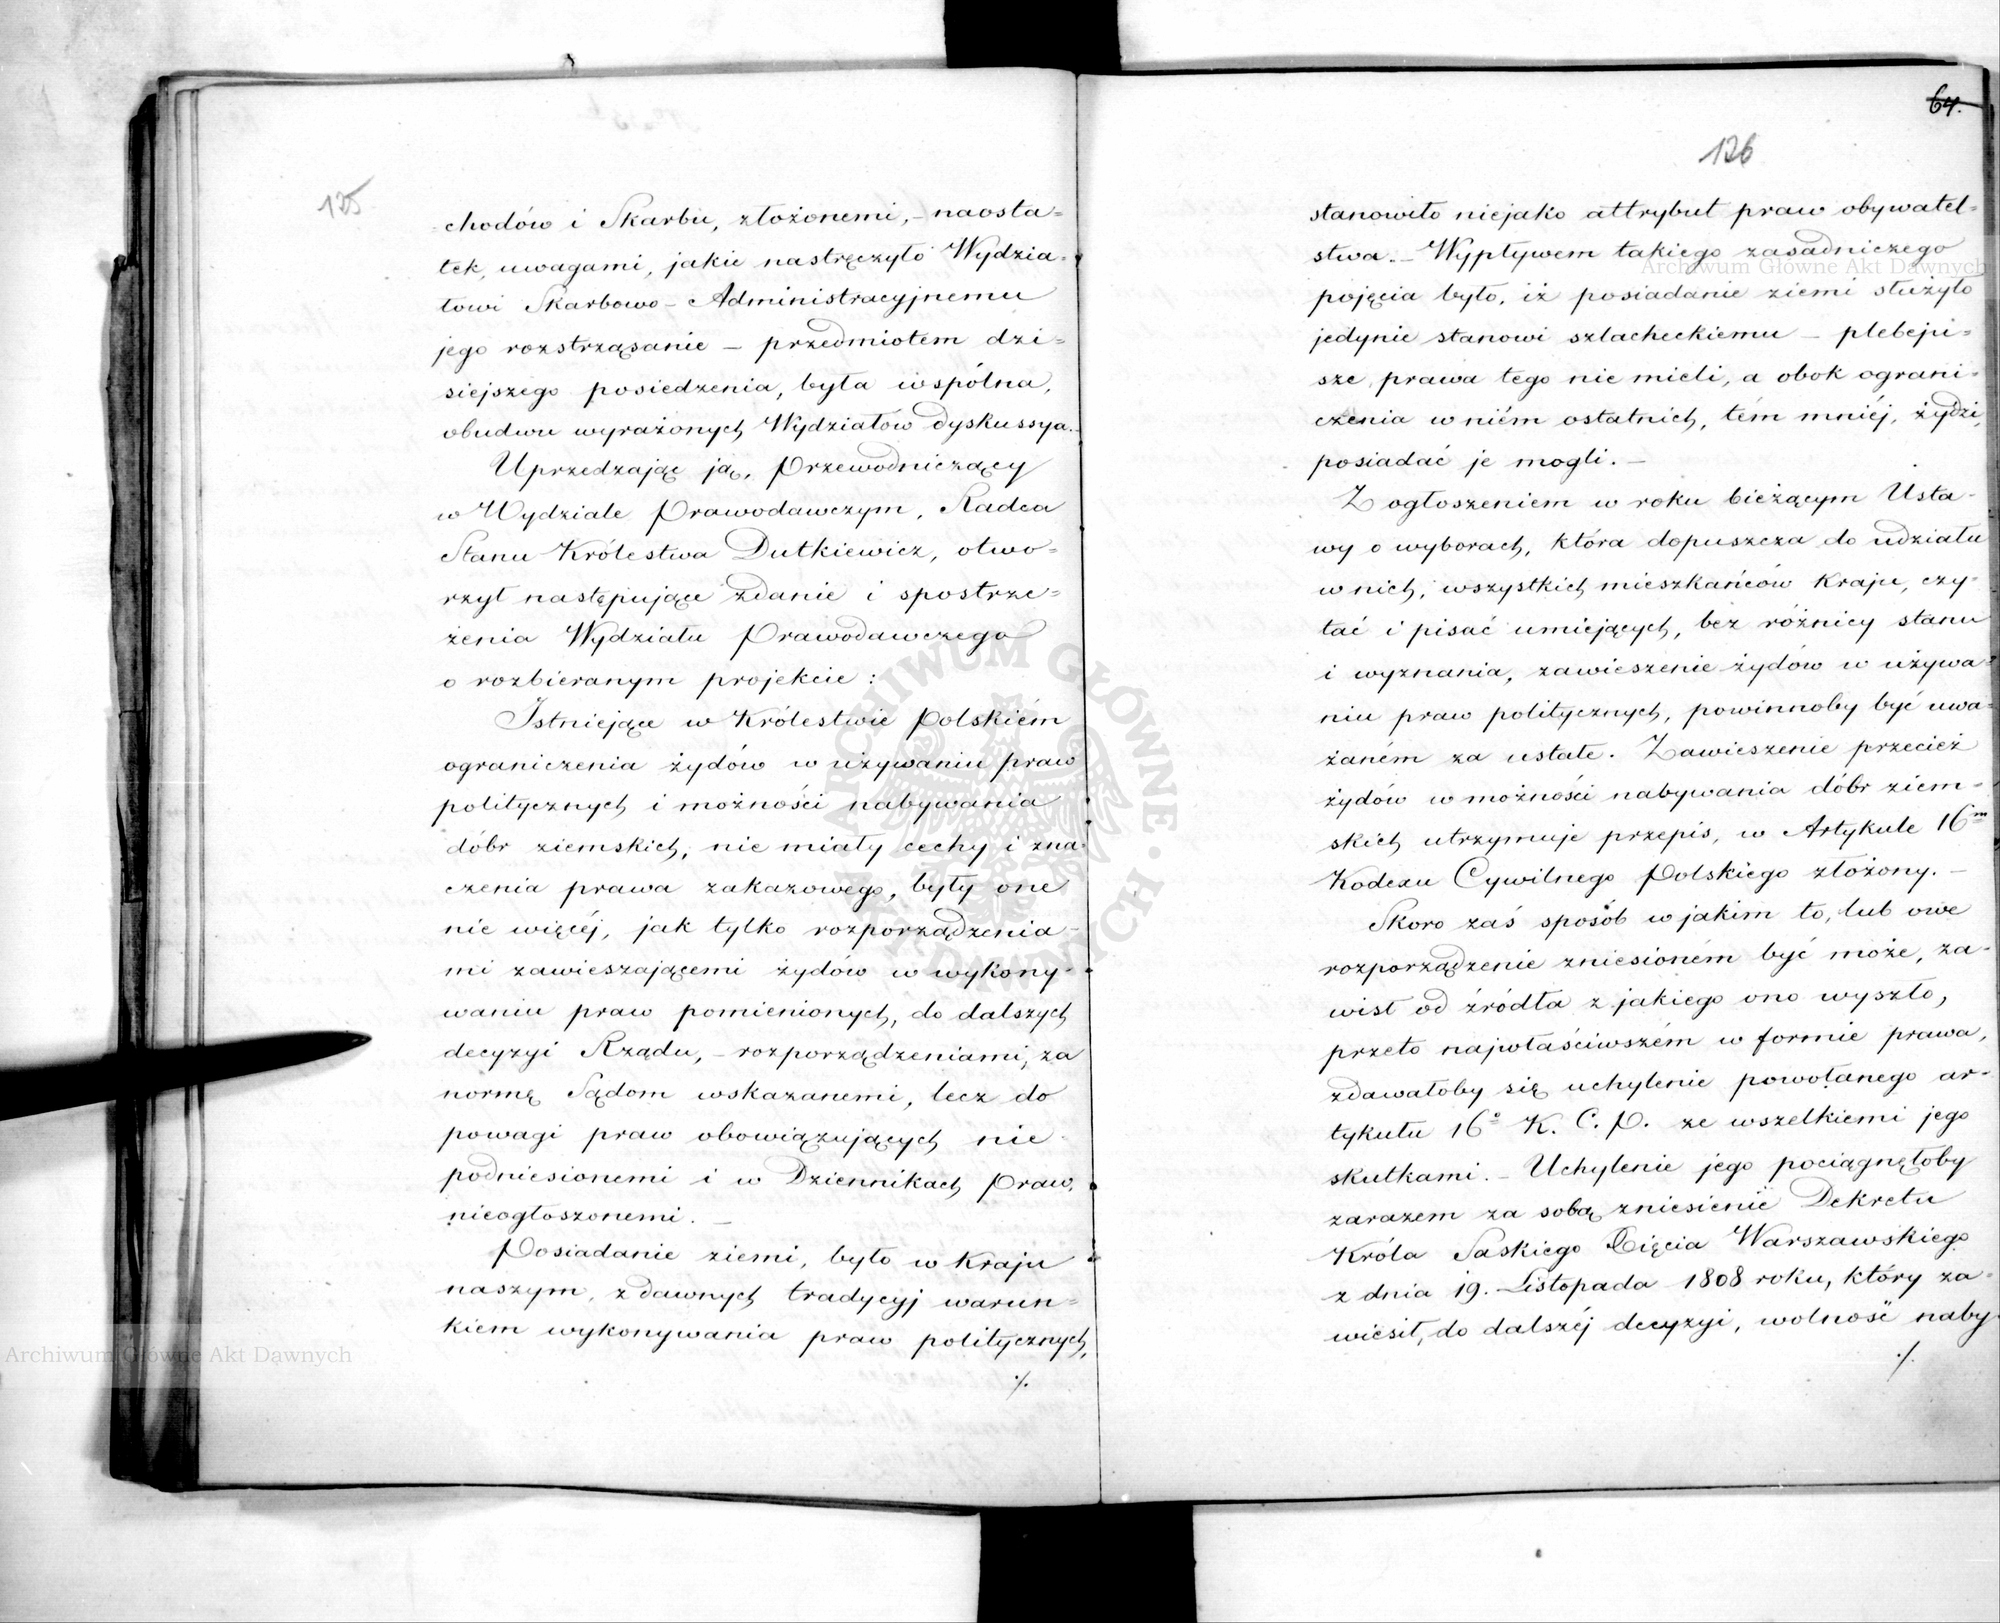 125
chodów i Skarbu, złożonemi, – naosta=
tek, uwagami, jakie nastręczyło Wydzia=
łowi Skarbowo – Administracyjnemu
jego rozstrząsanie – przedmiotem dzi=
siejszego posiedzenia, była wspólna,
obudwu wyrażonych Wydziałów dyskussya.
Uprzedzając ją, Przewodniczący
w Wydziale Prawodawczym, Radca
Stanu Królestwa Dutkiewicz, otwo=
rzył następujące zdanie i spostrze=
żenia Wydziału Prawodawczego
o rozbieranym projekcie :
Istniejące w Królestwie Polskiém
ograniczenia żydów w używaniu praw
politycznych i możności nabywania
dóbr ziemskich, nie miały cechy i zna=
czenia prawa zakazowego, były one
nic więcéj, jak tylko rozporządzenia=
mi zawieszającemi żydów w wykony=
waniu praw pomienionych, do dalszych
decyzyi Rządu, – rozporządzeniami, za
normę Sądom wskazanemi, lecz do
powagi praw obowiązujących nie=
podniesionemi i w Dziennikach Praw,
nieogłoszonemi. –
Posiadanie ziemi, było w Kraju
naszym, z dawnych tradycyj warun=
kiem wykonywania praw politycznych,
./.
64.
126
stanowiło niejako attrybut praw obywatel=
stwa. – Wypływem takiego zasadniczego
pojęcia było, iż posiadanie ziemi służyło
jedynie stanowi szlacheckiemu – plebeju=
sze, prawa tego nie mieli, a obok ograni=
czenia w niém ostatnich, tém mniéj, żydzi,
posiadać je mogli. –
Z ogłoszeniem w roku bieżącym Usta=
wy o wyborach, która dopuszcza do udziału
w nich, wszystkich mieszkańców Kraju, czy=
tać i pisać umiejących, bez różnicy stanu
i wyznania, zawieszenie żydów w używa=
niu praw politycznych, powinnoby być uwa=
żaném za ustałe. Zawieszenie przecież
żydów w możności nabywania dóbr ziem=
skich utrzymuje przepis, w Artykule 16m
Kodexu Cywilnego Polskiego złożony. –
Skoro zaś sposób w jakim to, lub owe
rozporządzenie zniesioném być może, za=
wisł od źródła z jakiego ono wyszło,
przeto najwłaściwszém w formie prawa,
zdawałoby się uchylenie powołanego ar=
tykułu 16o K. C. P. ze wszelkiemi jego
skutkami. – Uchylenie jego pociągnęłoby
zarazem za sobą zniesienie Dekretu
Króla Saskiego Xięcia Warszawskiego
z dnia 19. Listopada 1808 roku, który za=
wiesił, do dalszéj decyzyi, wolność naby=
./.
Archiwum Główne Akt Dawnych
Archiwum Główne Akt Dawnych
ARCHIWUM GŁÓWNE AKT DAWNYCH